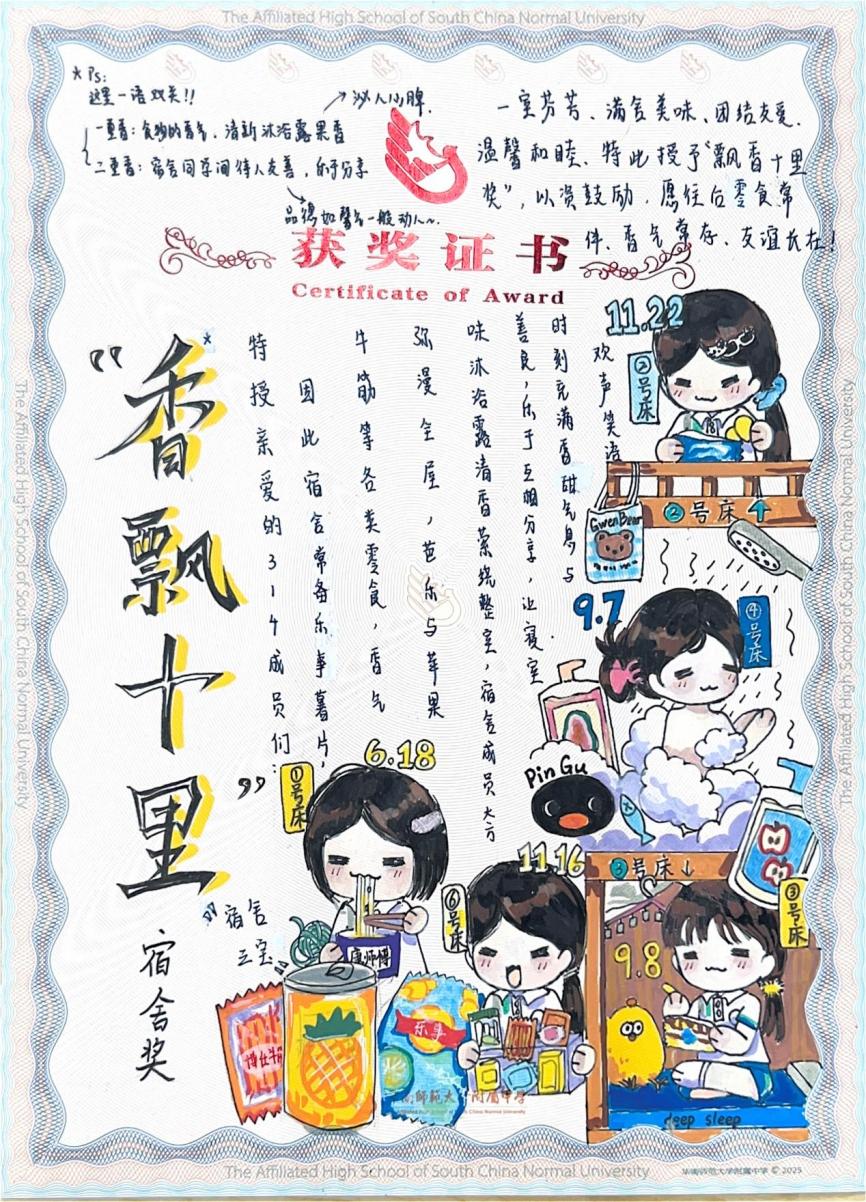 The Affiliated High School of South China Normal University
*Ps:
这里一语双关!!
一重香:食物的香气、清新沐浴露果香
→沁人心脾.
二重香:宿舍同学间待人友善,乐于分享
品德如馨气一般动人~.
一室芬芳、满舍美味、团结友爱、
温馨和睦、特此授予“飘香十里
奖”,以资鼓励,愿往后零食常
伴、香气常存、友谊长在!
获奖证书
Certificate of Award
“香飘十里”
宿舍奖
特授亲爱的314成员们:
因此宿舍常备乐事薯片,
牛筋等各类零食,香气
弥漫全屋,芭乐与苹果
味沐浴露清香萦绕整室,宿舍成员大方
善良,乐于互相分享,让寝室
时刻充满香甜气息与
欢声笑语.
11.22
②号床
②号床↑
GwenBear
9.7
④号床
Pin Gu
6.18
①号床
康师傅
“宿舍
三宝
乐事
11.16
⑥号床
③号床↓
③号床
9.8
deep sleep
The Affiliated High School of South China Normal University
The Affiliated High School of South China Normal University
The Affiliated High School of South China Normal University
华南师范大学附属中学 © 2025